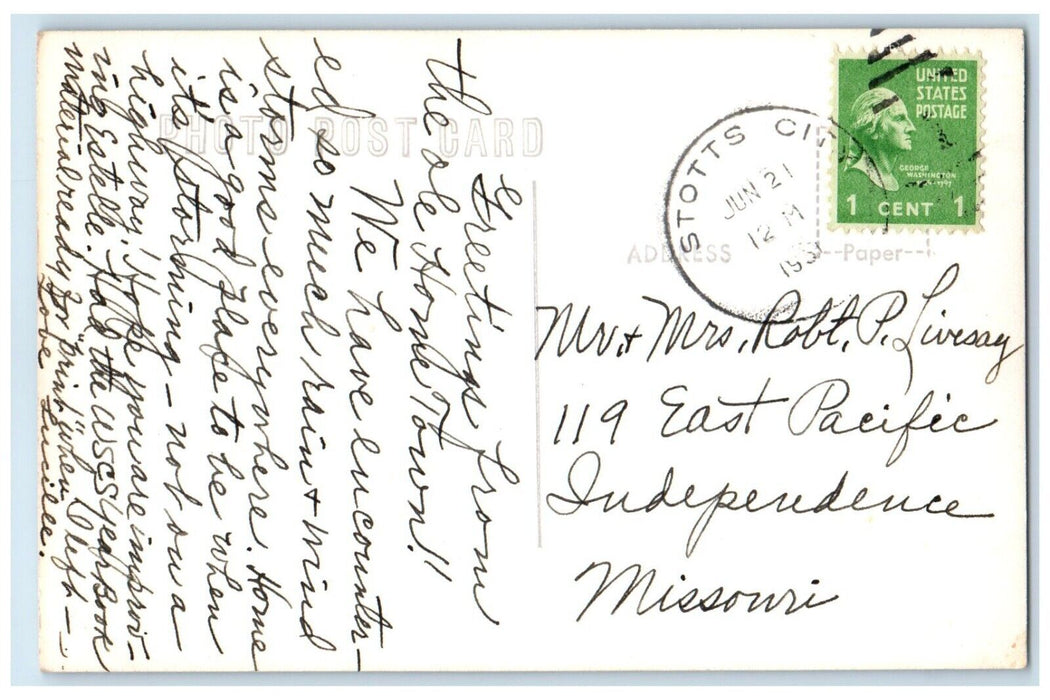 PHOTO POST CARD
Greetings from
the ole Home Town!!
We have encounter-
ed so much rain & wind
storms everywhere. Home
is a good place to be when
it's storming - not on a
highway. Hope you are improv-
ing Estelle. Had the WSCS yearbook
material ready for "print" when I left -
Love Lucile.
STOTTS CITY
JUN 21
12 M
UNITED
STATES
POSTAGE
GEORGE
WASHINGTON
1 CENT 1
ADDRESS
Paper
Mr. & Mrs. Robt. P. Livesay
119 East Pacific
Independence
Missouri